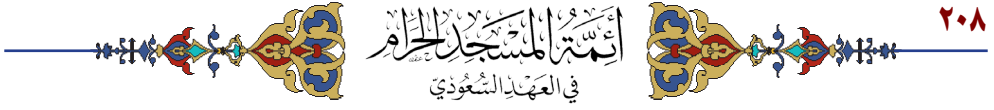 ٢٠٨
أَئِمَّةُ المَسْجِدِ الحَرَامِ
فِي العَهْدِ السُّعُودِيِّ